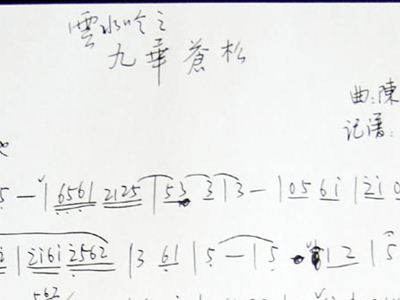 雲水吟之
九華蒼松
曲:陳
记谱:
5 — | 6561 2125 | 53 3 | 3 — | 05 6i | 2i 0
| 2i6i 2562 | 3 61 | 5 — | 5 · 12 | 5
562